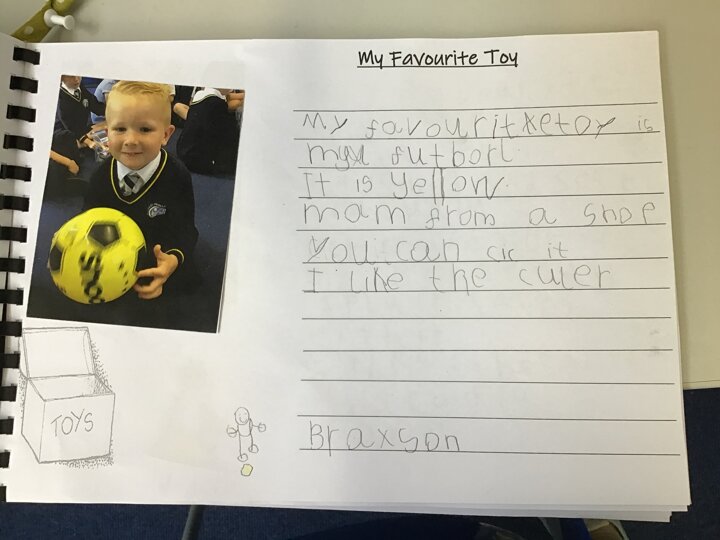 My Favourite Toy
My favouritxetoy is
myx futborl.
It is yellow.
mam from a shop
You can cic it
I like the culer
Braxson
TOYS